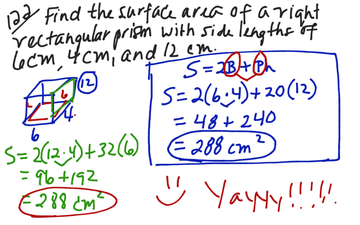 122 Find the surface area of a right
rectangular prism with side lengths of
6cm, 4cm, and 12 cm.
S=2B+Ph
S=2(6·4)+20(12)
= 48 + 240
= 288 cm²
12
6
4
6
S=2(12·4)+32(6)
= 96+192
= 288 cm²
Yayyy!!!!!